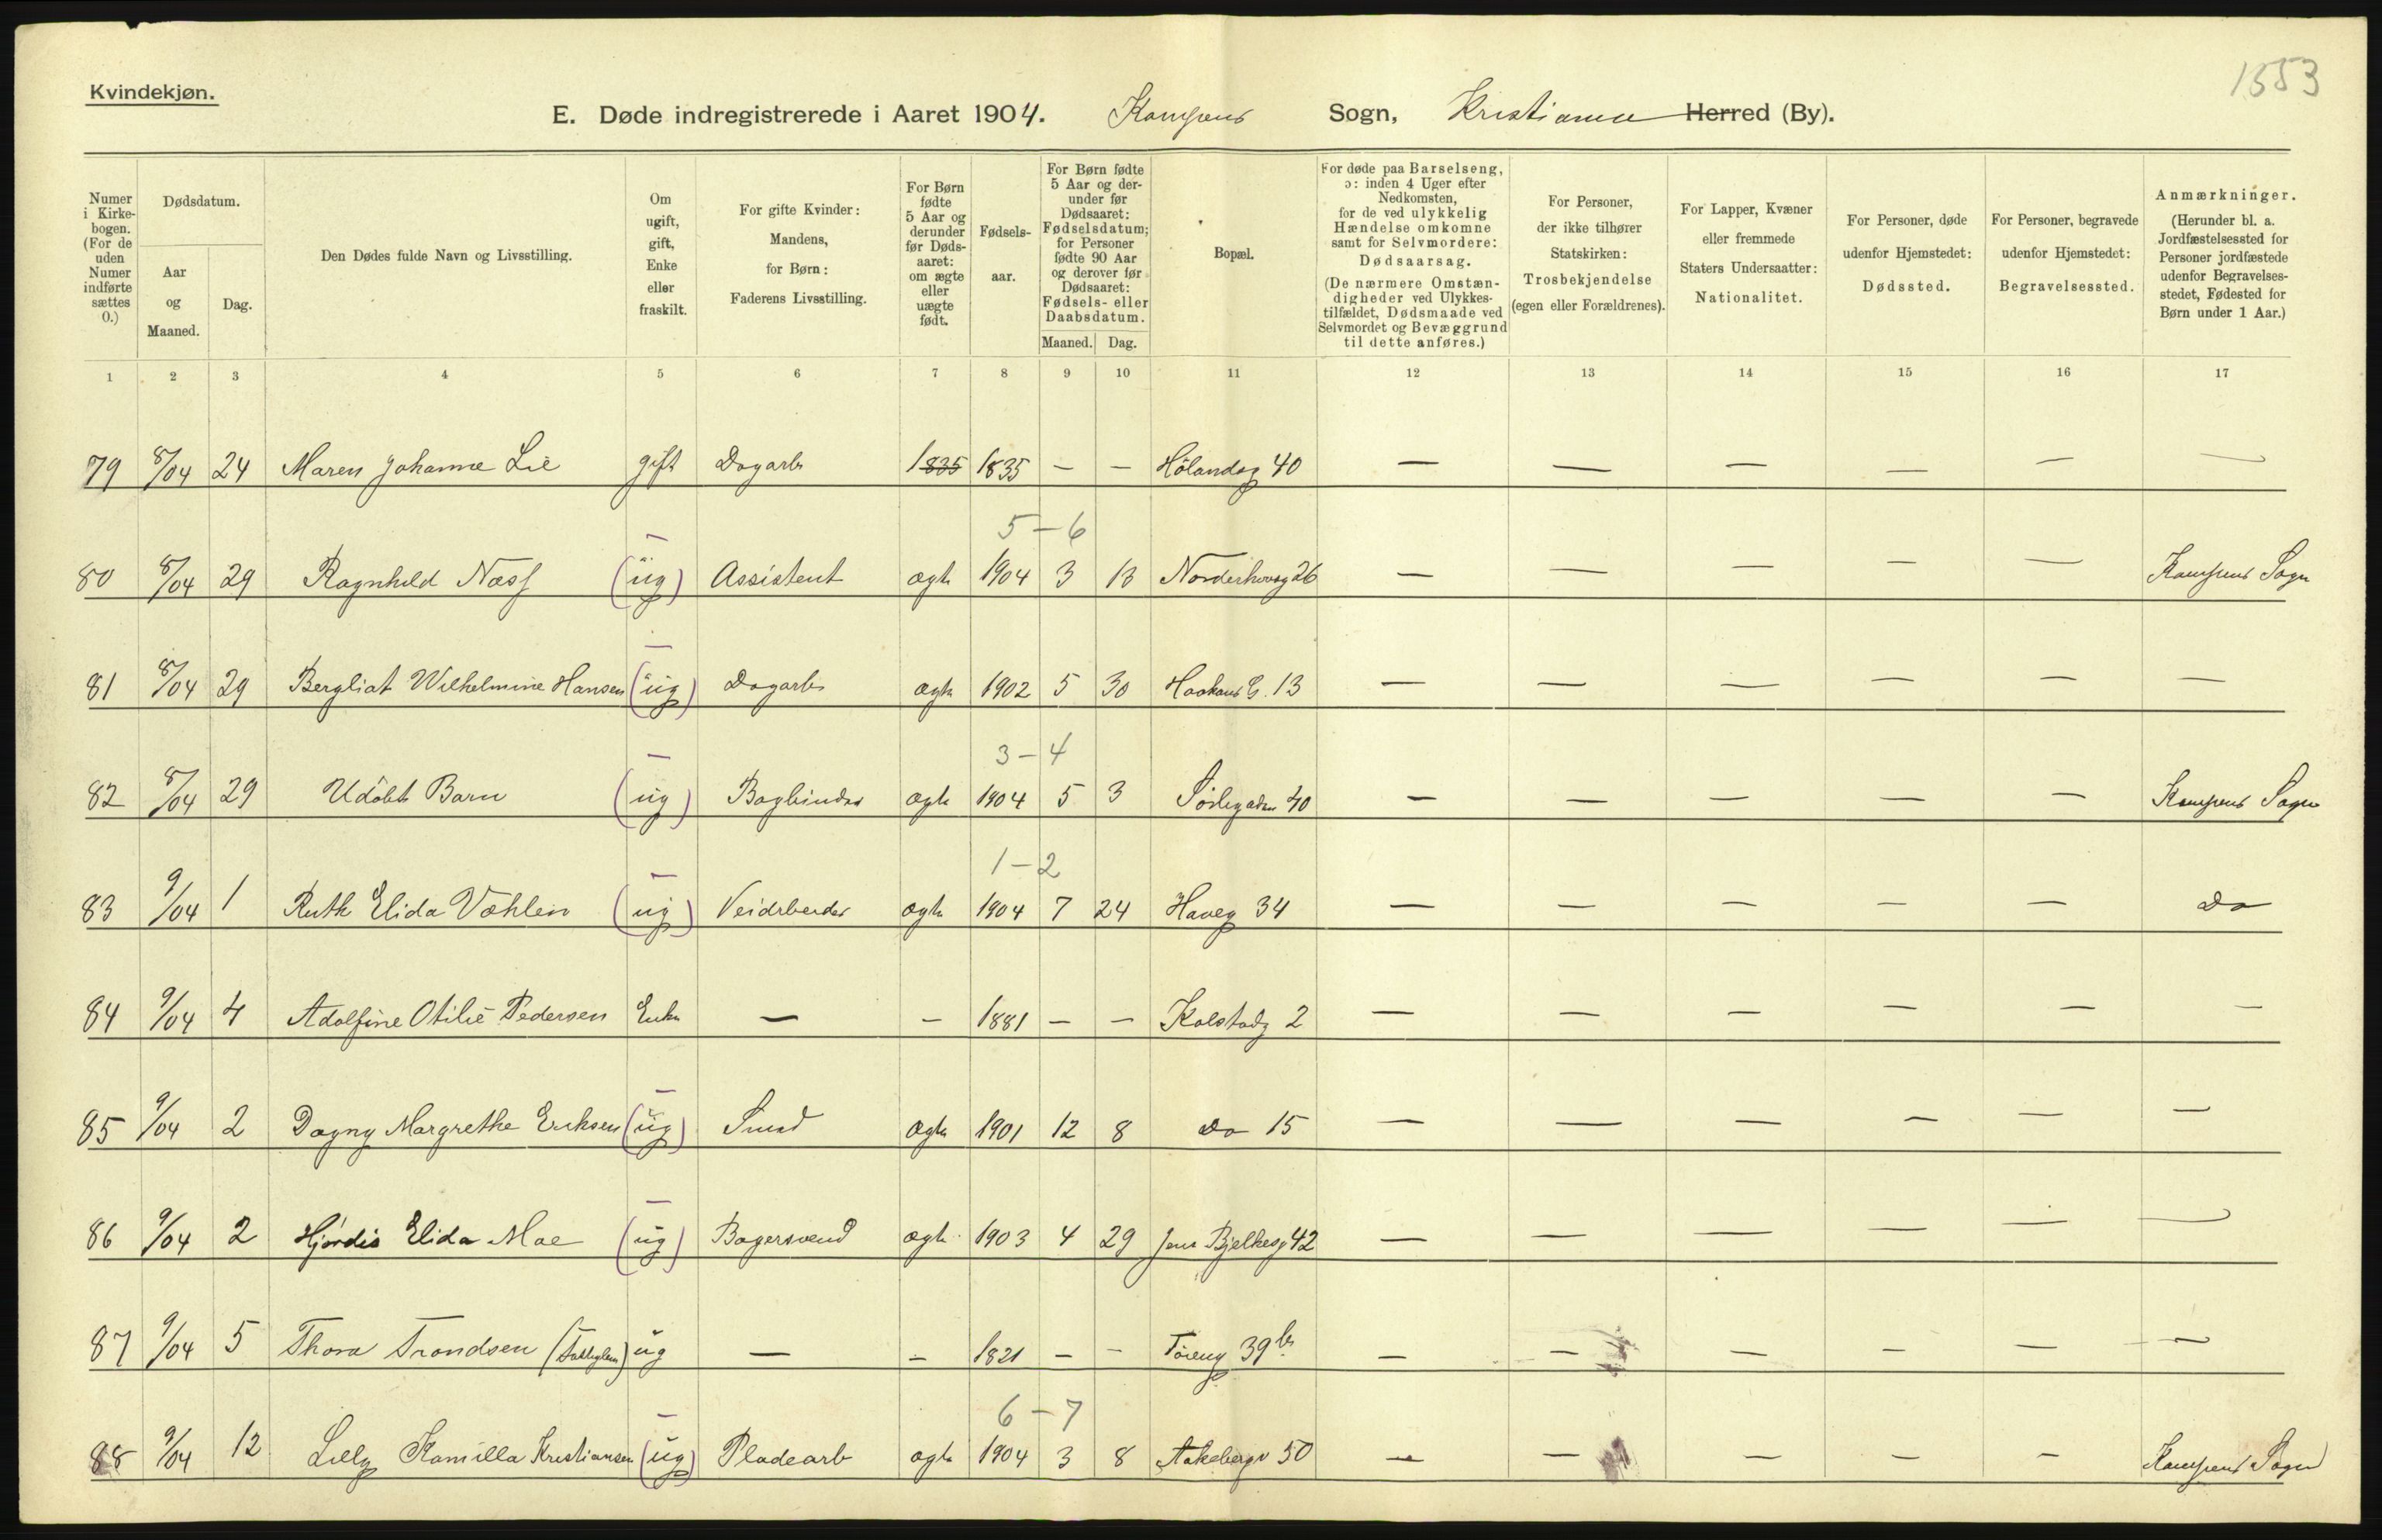 1553
Kvindekjøn.
E. Døde indregistrerede i Aaret 1904. Kampens Sogn, Kristiania Herred (By).
Numer i Kirkebogen. (For de uden Numer indførte sættes 0.)
Dødsdatum.
Aar og Maaned.
Dag.
Den Dødes fulde Navn og Livsstilling.
Om ugift, gift, Enke eller fraskilt.
For gifte Kvinder: Mandens, for Børn: Faderens Livsstilling.
For Børn fødte 5 Aar og derunder før Dødsaaret: om ægte eller uægte født.
Fødselsaar.
For Børn fødte 5 Aar og derunder før Dødsaaret: Fødselsdatum; for Personer fødte 90 Aar og derover før Dødsaaret: Fødsels- eller Daabsdatum.
Maaned. Dag.
Bopæl.
For døde paa Barselseng, ɔ: inden 4 Uger efter Nedkomsten, for de ved ulykkelig Hændelse omkomne samt for Selvmordere: Dødsaarsag. (De nærmere Omstændigheder ved Ulykkestilfældet, Dødsmaade ved Selvmordet og Bevæggrund til dette anføres.)
For Personer, der ikke tilhører Statskirken: Trosbekjendelse (egen eller Forældrenes).
For Lapper, Kvæner eller fremmede Staters Undersaatter: Nationalitet.
For Personer, døde udenfor Hjemstedet: Dødssted.
For Personer, begravede udenfor Hjemstedet: Begravelsessted.
Anmærkninger. (Herunder bl. a. Jordfæstelsessted for Personer jordfæstede udenfor Begravelsesstedet, Fødested for Børn under 1 Aar.)
1 2 3 4 5 6 7 8 9 10 11 12 13 14 15 16 17
79 8/04 24 Maren Johanne Lie gift Dagarb 1835 1835 — — Hölandsg 40 — — — — — —
5 — 6
80 8/04 29 Ragnhild Næss (ug) Assistent ægte 1904 3 13 Norderhovsg 26 — — — — — Kampens Sogn
81 8/04 29 Bergliot Wilhelmine Hansen (ug) Dagarb ægte 1902 5 30 Haakons G. 13 — — — — — —
3 — 4
82 8/04 29 Udöbt Barn (ug) Bogbinder ægte 1904 5 3 40 — — — — — Kampens Sogn
1 — 2
83 9/04 1 Ruth Elida Væhlen (ug) ægte 1904 7 24 Haveg 34 — — — — — Do
84 9/04 4 Adolfine Otilie Pedersen Enke — — 1881 — — Kolstadg 2 — — — — — —
85 9/04 2 Dagny Margrethe Eriksen (ug) Smed ægte 1901 12 8 Do 15 — — — — — —
86 9/04 2 Hjördis Elida Moe (ug) Bagersvend ægte 1903 4 29 Jens Bjelkesg 42 — — — — — —
87 9/04 5 Thora Trondsen ug — — 1821 — — Töieng 39 b — — — — —
6 — 7
88 9/04 12 Lilly Kamilla Kristiansen (ug) Pladearb ægte 1904 3 8 Aakebergv 50 — — — — — Kampens Sogn